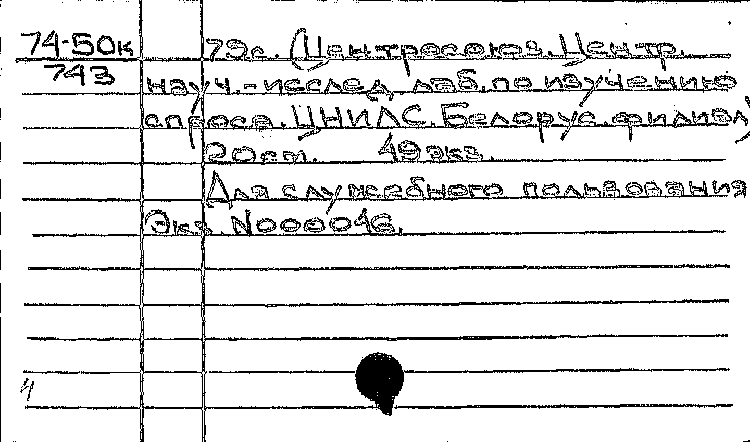 74-50к 79с. (Центросоюз. Центр.
743 науч.-исслед. лаб. по изучению
спроса. ЦНИЛС. Белорус. филиал)
20см. 49экз.
Для служебного пользования
Экз. N000046.
4